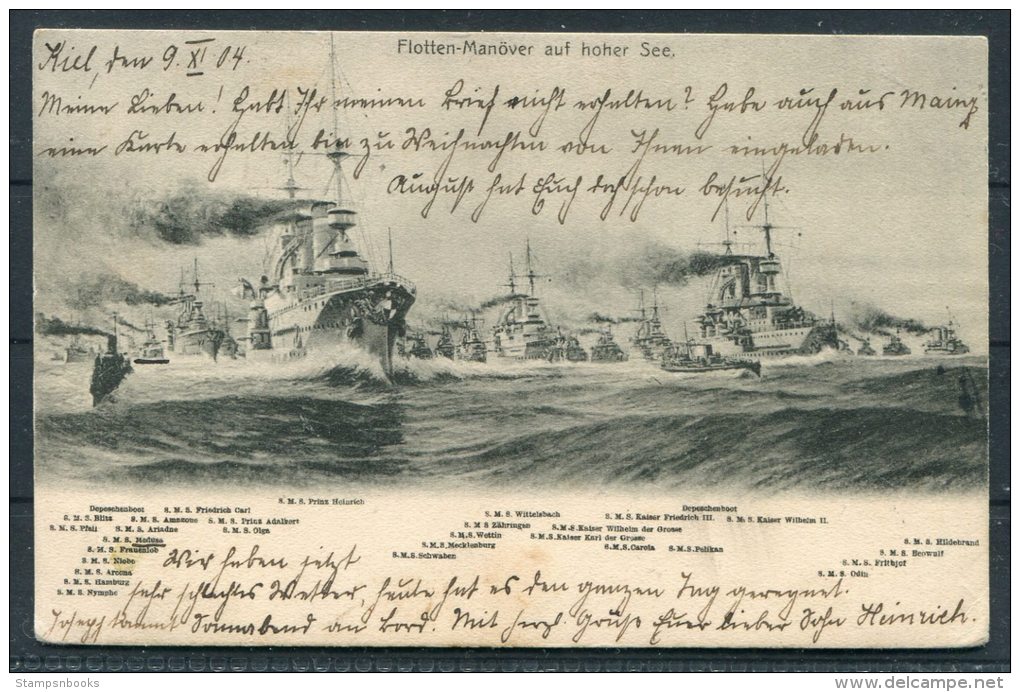 Flotten-Manöver auf hoher See.
Kiel, den 9. XI 04.
Meine Lieben! Habt Ihr meinen Brief nicht erhalten? Habe auch aus Mainz
eine Karte erhalten, bin zu Weihnachten von Ihnen eingeladen.
August hat Euch doch schon besucht.
S. M. S. Prinz Heinrich
Depeschenboot S. M. S. Friedrich Carl
S. M. S. Blitz S. M. S. Amazone S. M. S. Prinz Adalbert
S. M. S. Pfeil S. M. S. Ariadne S. M. S. Olga
S. M. S. Medusa
S. M. S. Frauenlob
S. M. S. Niobe
S. M. S. Arcona
S. M. S. Hamburg
S. M. S. Nymphe
Depeschenboot
S. M. S. Wittelsbach S. M. S. Kaiser Friedrich III. S. M. S. Kaiser Wilhelm II.
S. M. S Zähringen S.M.S.Kaiser Wilhelm der Grosse
S.M.S.Wettin S.M.S.Kaiser Karl der Grosse
S.M.S.Mecklenburg S.M.S.Carola S.M.S.Pelikan
S.M.S.Schwaben
S. M. S. Hildebrand
S. M. S. Beowulf
S. M. S. Frithjof
S. M. S. Odin
Wir haben jetzt
sehr schlechtes Wetter, heute hat es den ganzen Tag geregnet.
Joseph kommt Sonnabend an Bord. Mit herzl. Grüße Euer lieber Sohn Heinrich.
Stampsnbooks
delcampe.net